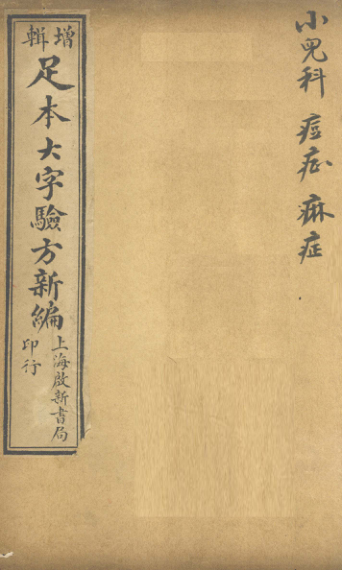 小兒科 痘症 痳症
增輯
足本大字驗方新編
上海啟新書局
印行